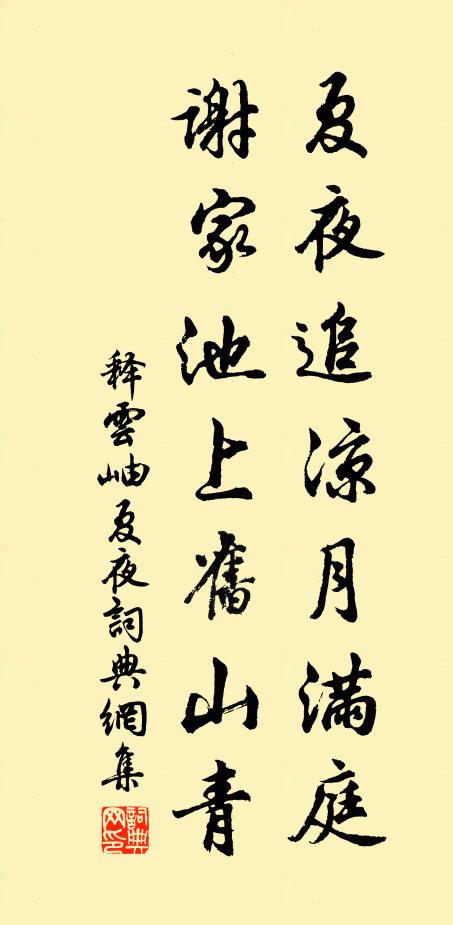 夏夜追凉月满庭
谢家池上舊山青
释雲岫夏夜詞典網集
詞典網印